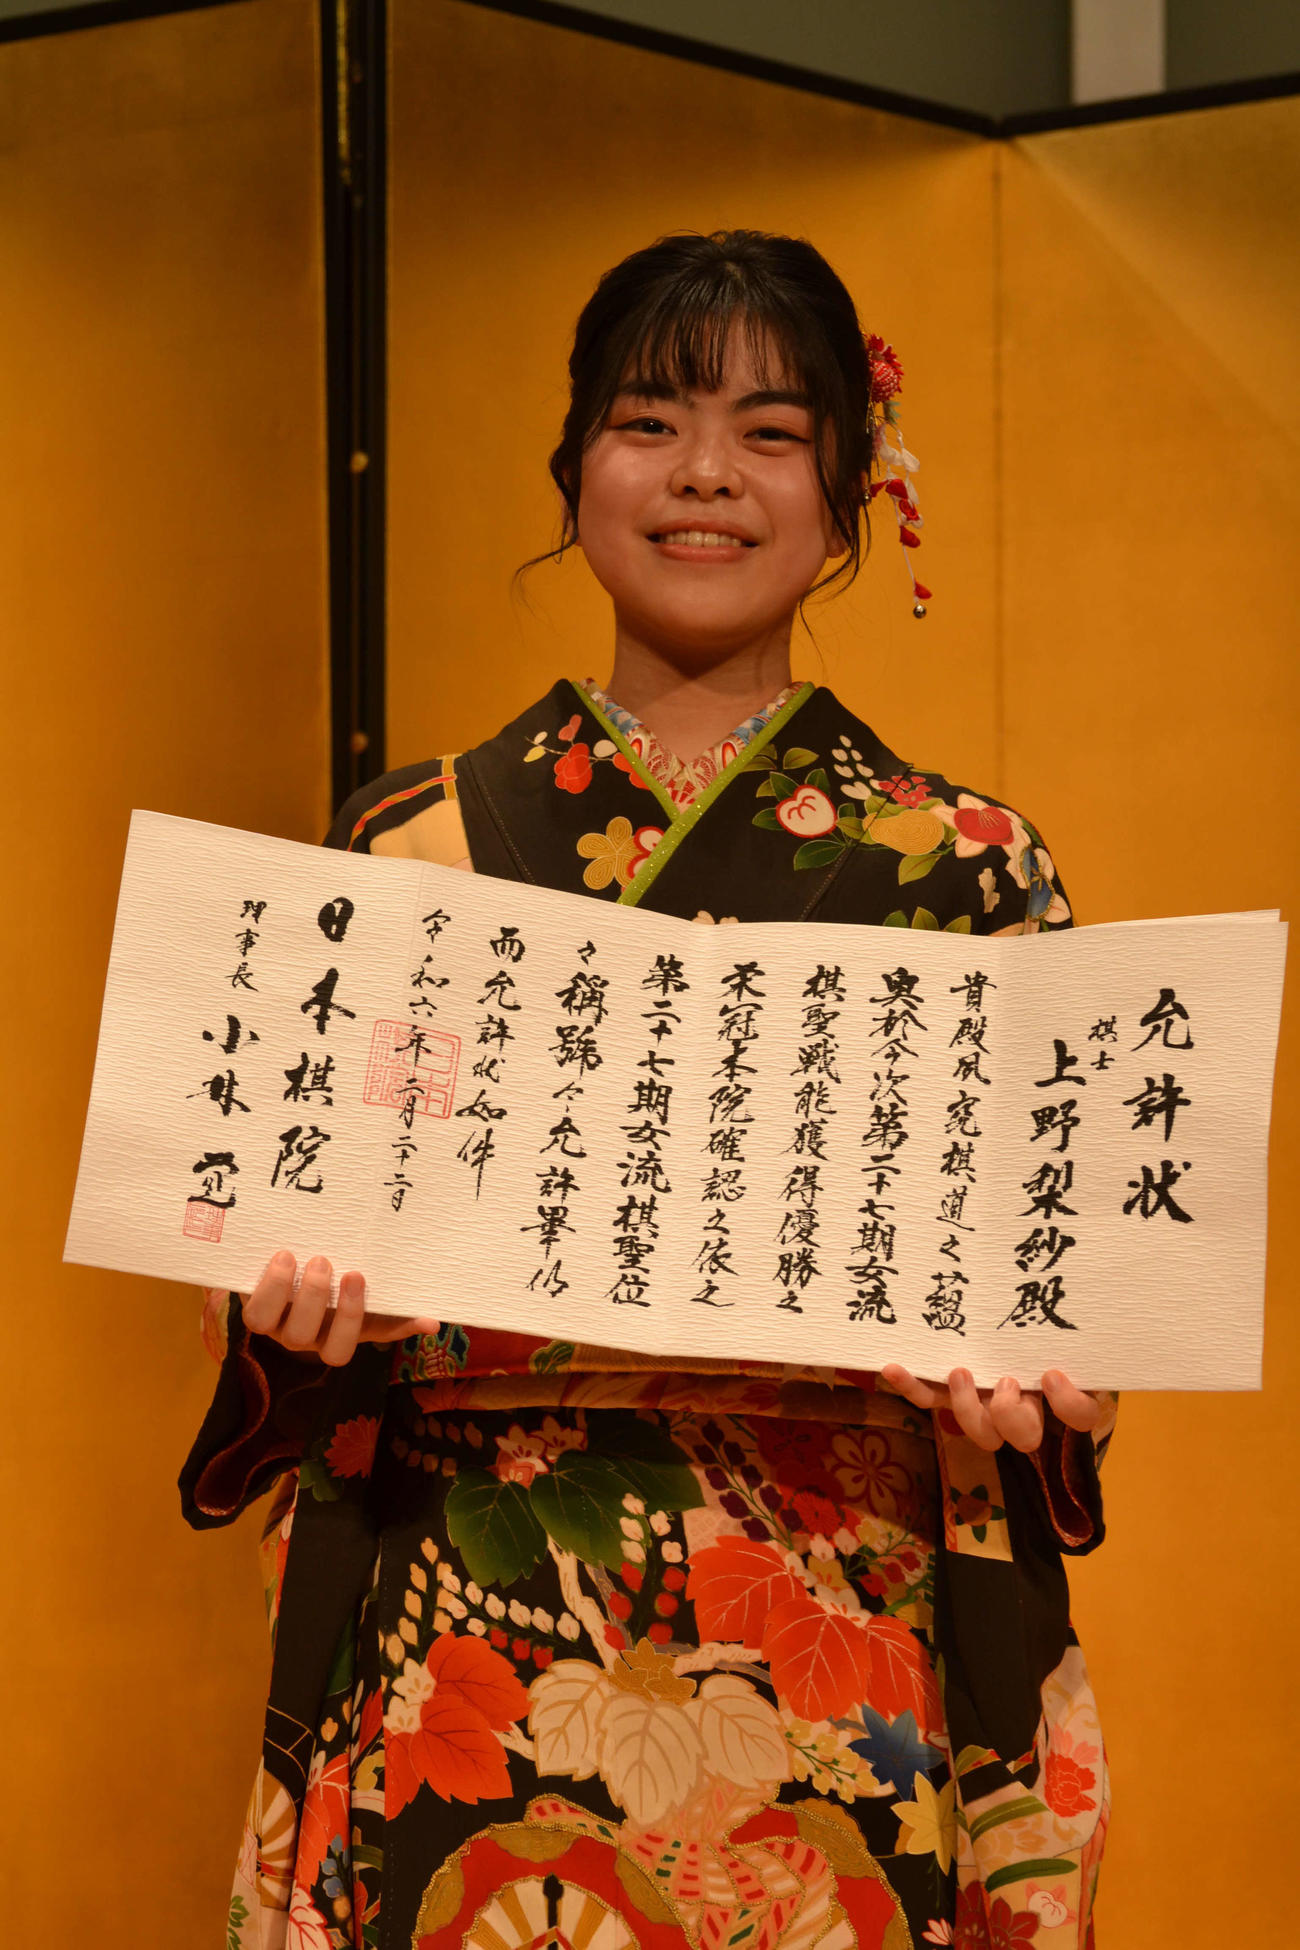 允許状
棋士
上野梨紗殿
貴殿夙究棋道之蘊
奥於今次第二十七期女流
棋聖戦能獲得優勝之
栄冠本院確認之依之
第二十七期女流棋聖位
之稱號令允許畢仍
而允許状如件
令和六年二月二十二日
日本棋院
理事長
小林覚